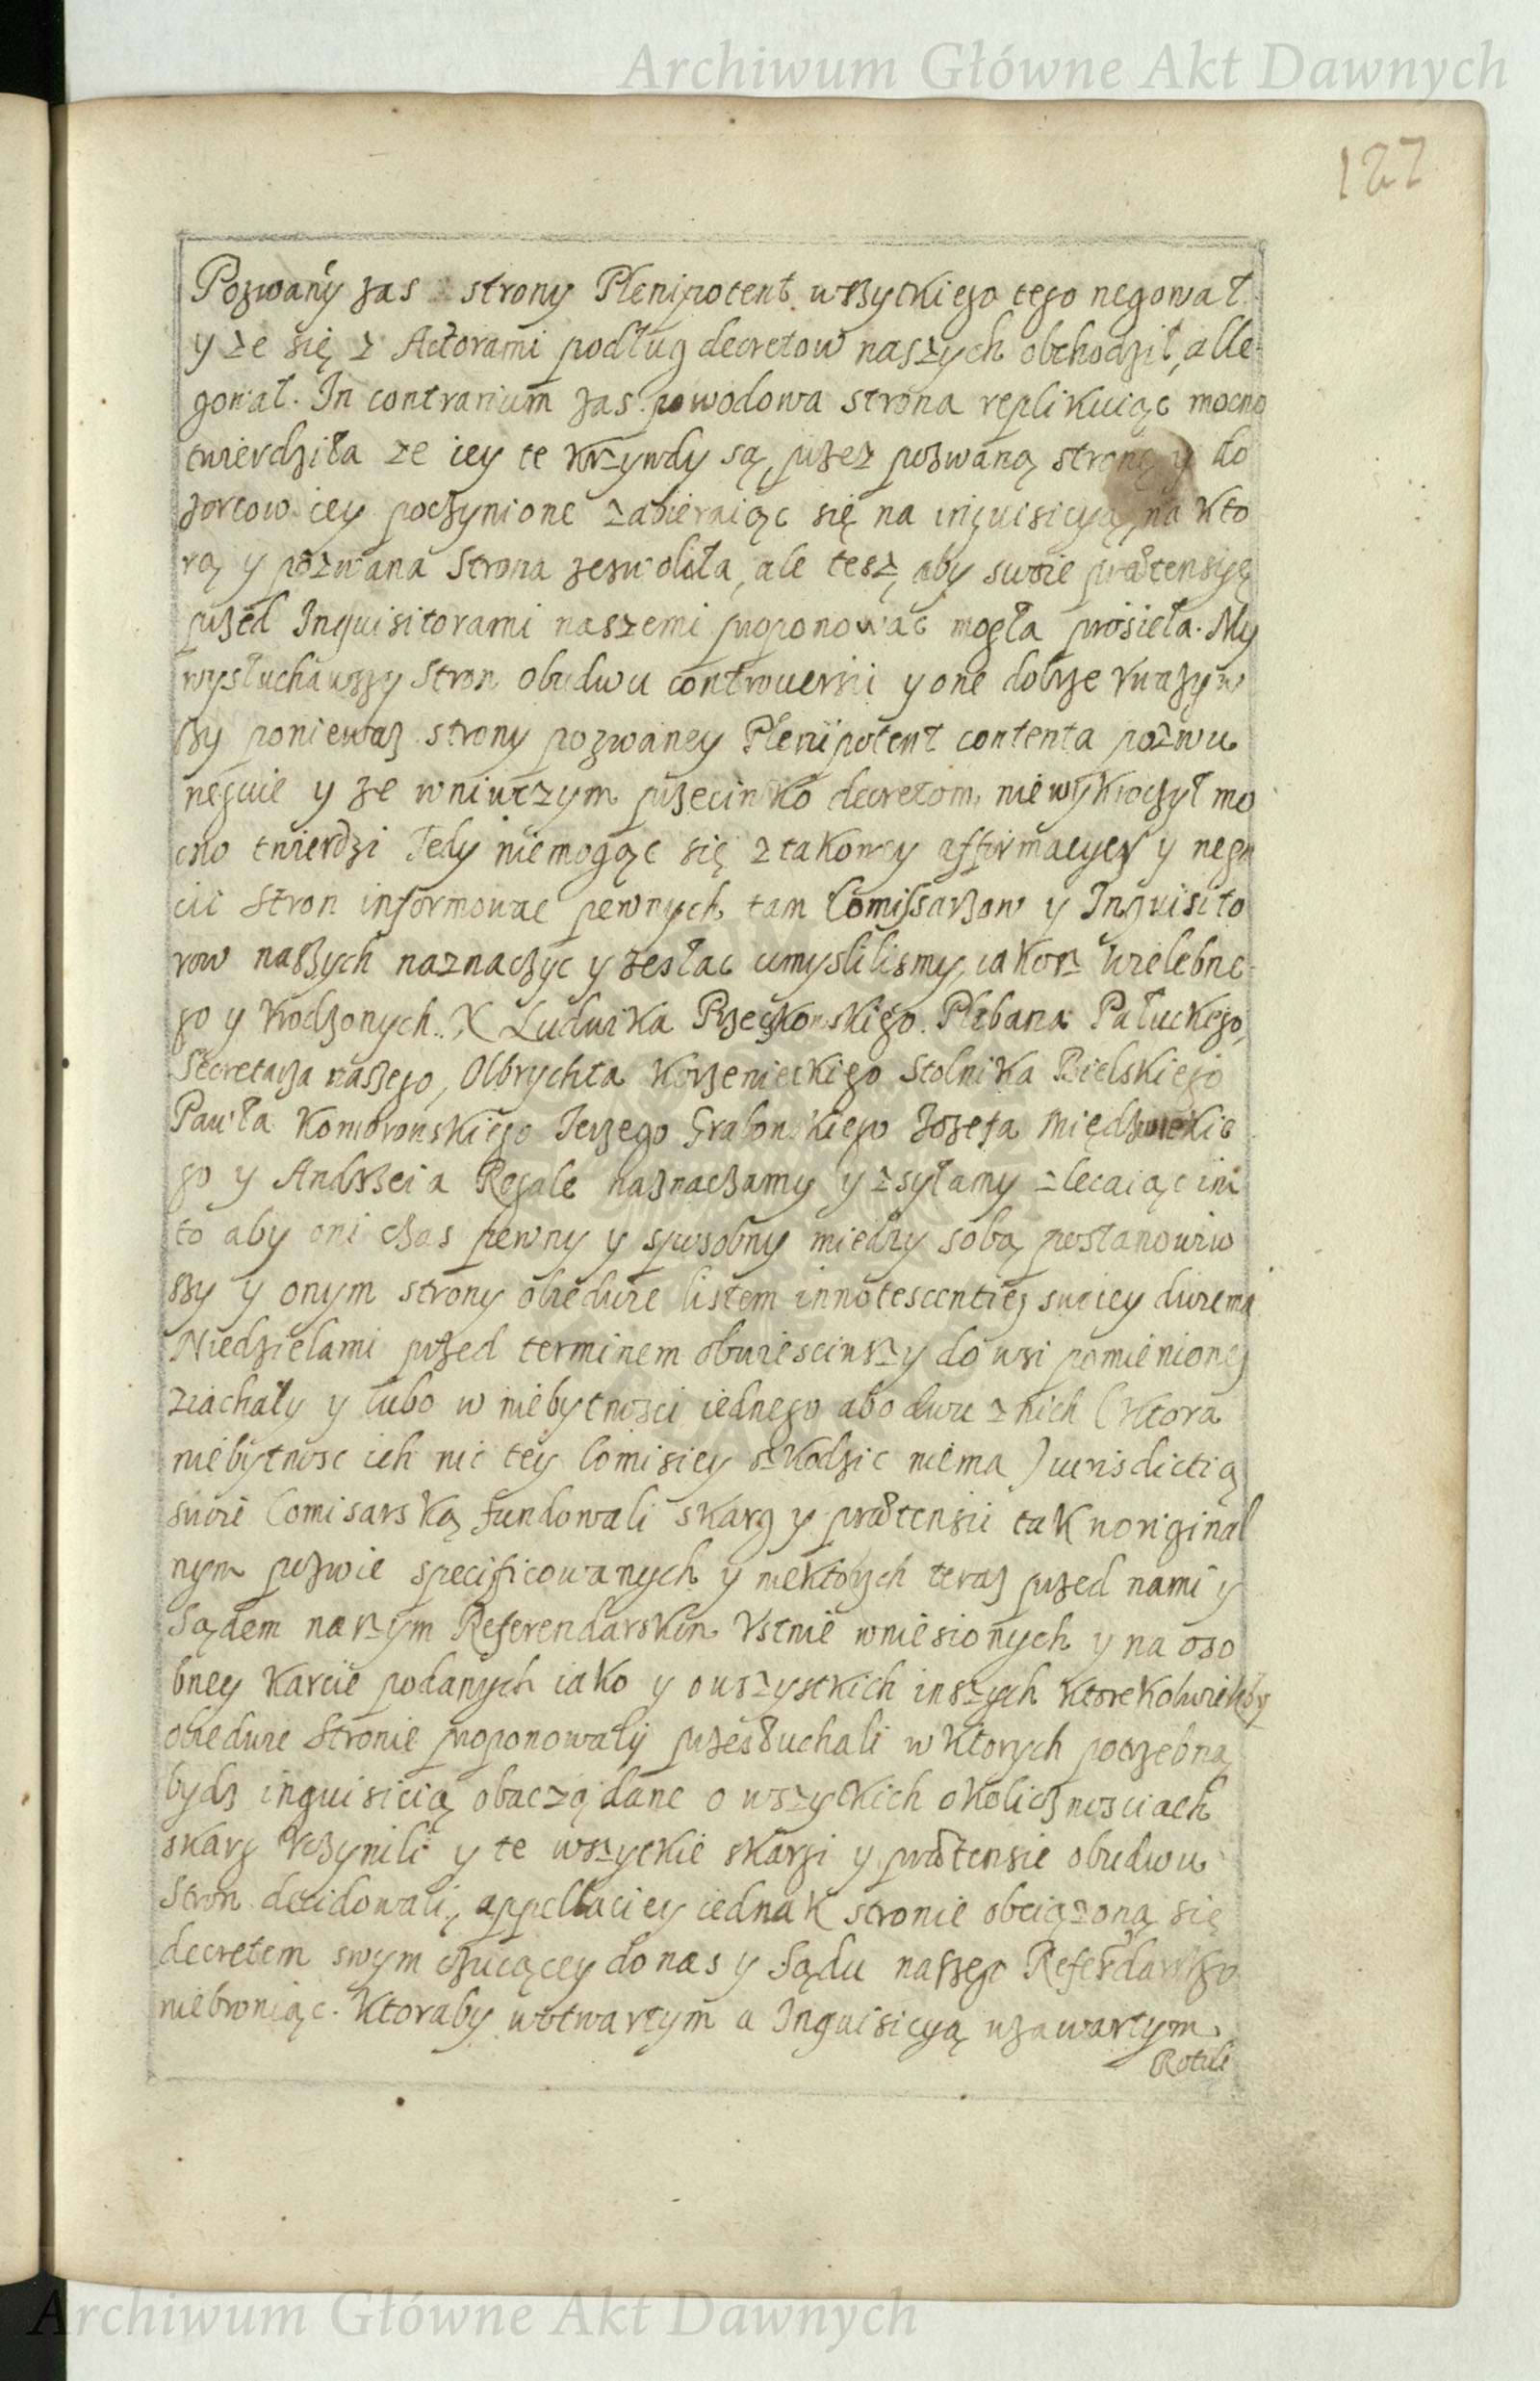 Archiwum Główne Akt Dawnych
127
Pozwany zas strony Plenipotent wszytkiego tego negował
y ze się z Actorami podług decretow naszych obchodził, alle
gował. In contrarium zas powodowa strona replikuiąc mocno
twierdziła ze iey te krzywdy są przez pozwaną stronę y do
zorcow iey poczynione zabieraiąc się na inquisicyą, na kto
rą y pozwana Strona zezwoliła, ale tesz, aby swoie prætensyę
przed Inquisitorami naszemi proponowac mogła prosieła. My
wysłuchawszy Stron obudwu controuersii y one dobrze vwazyw
szy poniewaz strony pozwaney Plenipotent contenta pozwu
neguie y ze wniwczym przeciwko decretom niewykroczył mo
cno twierdzi Tedy niemogąc się z takowey affirmacyey y nega
cii Stron informowac pewnych tam Comissarzow y Inquisito
row naszych naznaczyc y zesłac umyslilismy, iakosz Wielebne
go y Vrodzonych. X Ludwika Rzeczkowskiego Plebana Pałuckego,
Secretarza naszego, Olbrychta Korzenieckiego Stolnika Bielskiego
Pawła Komorowskiego Jerzego Grabowskiego Jozefa
go y Andrzeia Regale naznaczamy y zsyłamy zlecaiąc im
to aby oni czas pewny y sposobny miedzy sobą postanowiw
szy y onym strony obiedwie listem innotescentiey swoiey dwiema
Niedzielami przed terminem obwiesciwszy do wsi pomienioney
ziachały y lubo w niebytnosci iednego abo dwu z nich (ktora
niebytnosc ich nic tey Comisiey szkodzic niema) iurisdictią
swoie Comisarską fundowali skarg y prætensii tak noriginal
nym pozwie specificowanych y niektorych teraz przed nami y
Sądem naszym Referendarskim Vstnie wniesionych y na oso
bney karcie podanych iako y owszystkich inszych ktorekolwiekby
obiedwie Stronie proponowały przesłuchali w ktorych potrzebną
bydz inquisicią obaczą dane o wszyckich okolicznosciach
skarg vczynili y te wszyckie skargi y prætensie obudwu
Stron decidowali, appellaciey iednak stronie obciązoną się
decretem swym czuiącey do nas y Sądu naszego Referendarskgo
niebroniąc. Ktoraby wotwartym a Inquisicyą wzawartym
Rotule
Archiwum Główne Akt Dawnych